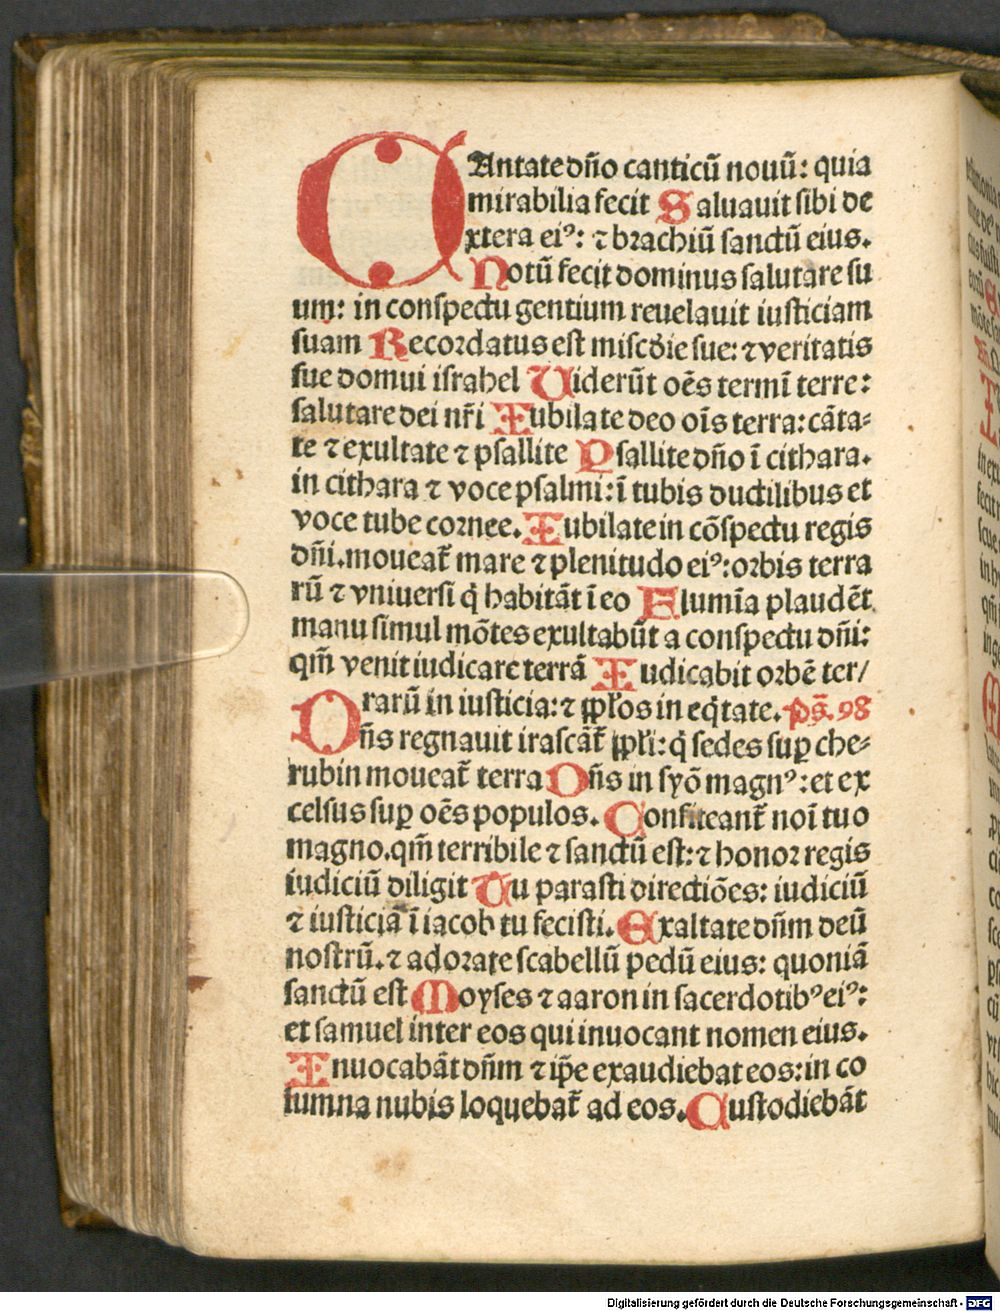 CAntate dn̄o canticū nouū: quia
mirabilia fecit Saluauit sibi de
xtera eiꝰ: ⁊ brachiū sanctū eius.
Notū fecit dominus salutare su
um: in conspectu gentium reuelauit iusticiam
suam Recordatus est miscd̄ie sue: ⁊ veritatis
sue domui israhel Uiderūt oēs termī terre:
salutare dei nr̄i Iubilate deo oīs terra: cāta⸗
te ⁊ exultate ⁊ psallite Psallite dn̄o ī cithara.
in cithara ⁊ voce psalmi: ī tubis ductilibus et
voce tube cornee. Iubilate in cōspectu regis
dn̄i. moueat᷑ mare ⁊ plenitudo eiꝰ: orbis terra
rū ⁊ vniuersi q̇ habitāt ī eo Flumīa plaudēt
manu simul mōtes exultabūt a conspectu dn̄i:
qm̄ venit iudicare terrā Iudicabit orbē ter/
rarū in iusticia: ⁊ ꝓpl̄os in eq̇tate. ps̄. 98
Dn̄s regnauit irascāt᷑ ꝓpl̄i: q̇ sedes suꝑ che⸗
rubin moueat᷑ terra Dn̄s in syō magnꝰ: et ex
celsus suꝑ oēs populos. Confiteant᷑ noī tuo
magno. qm̄ terribile ⁊ sanctū est: ⁊ honor regis
iudiciū diligit Tu parasti directiōes: iudiciū
⁊ iusticiā ī iacob tu fecisti. Exaltate dn̄m deū
nostrū. ⁊ adorate scabellū pedū eius: quoniā
sanctū est Moyses ⁊ aaron in sacerdotibꝰ eiꝰ:
et samuel inter eos qui inuocant nomen eius.
Inuocabāt dn̄m ⁊ ip̄e exaudiebat eos: in co
lumna nubis loquebat᷑ ad eos. Custodiebāt
Digitalisierung gefördert durch die Deutsche Forschungsgemeinschaft - DFG